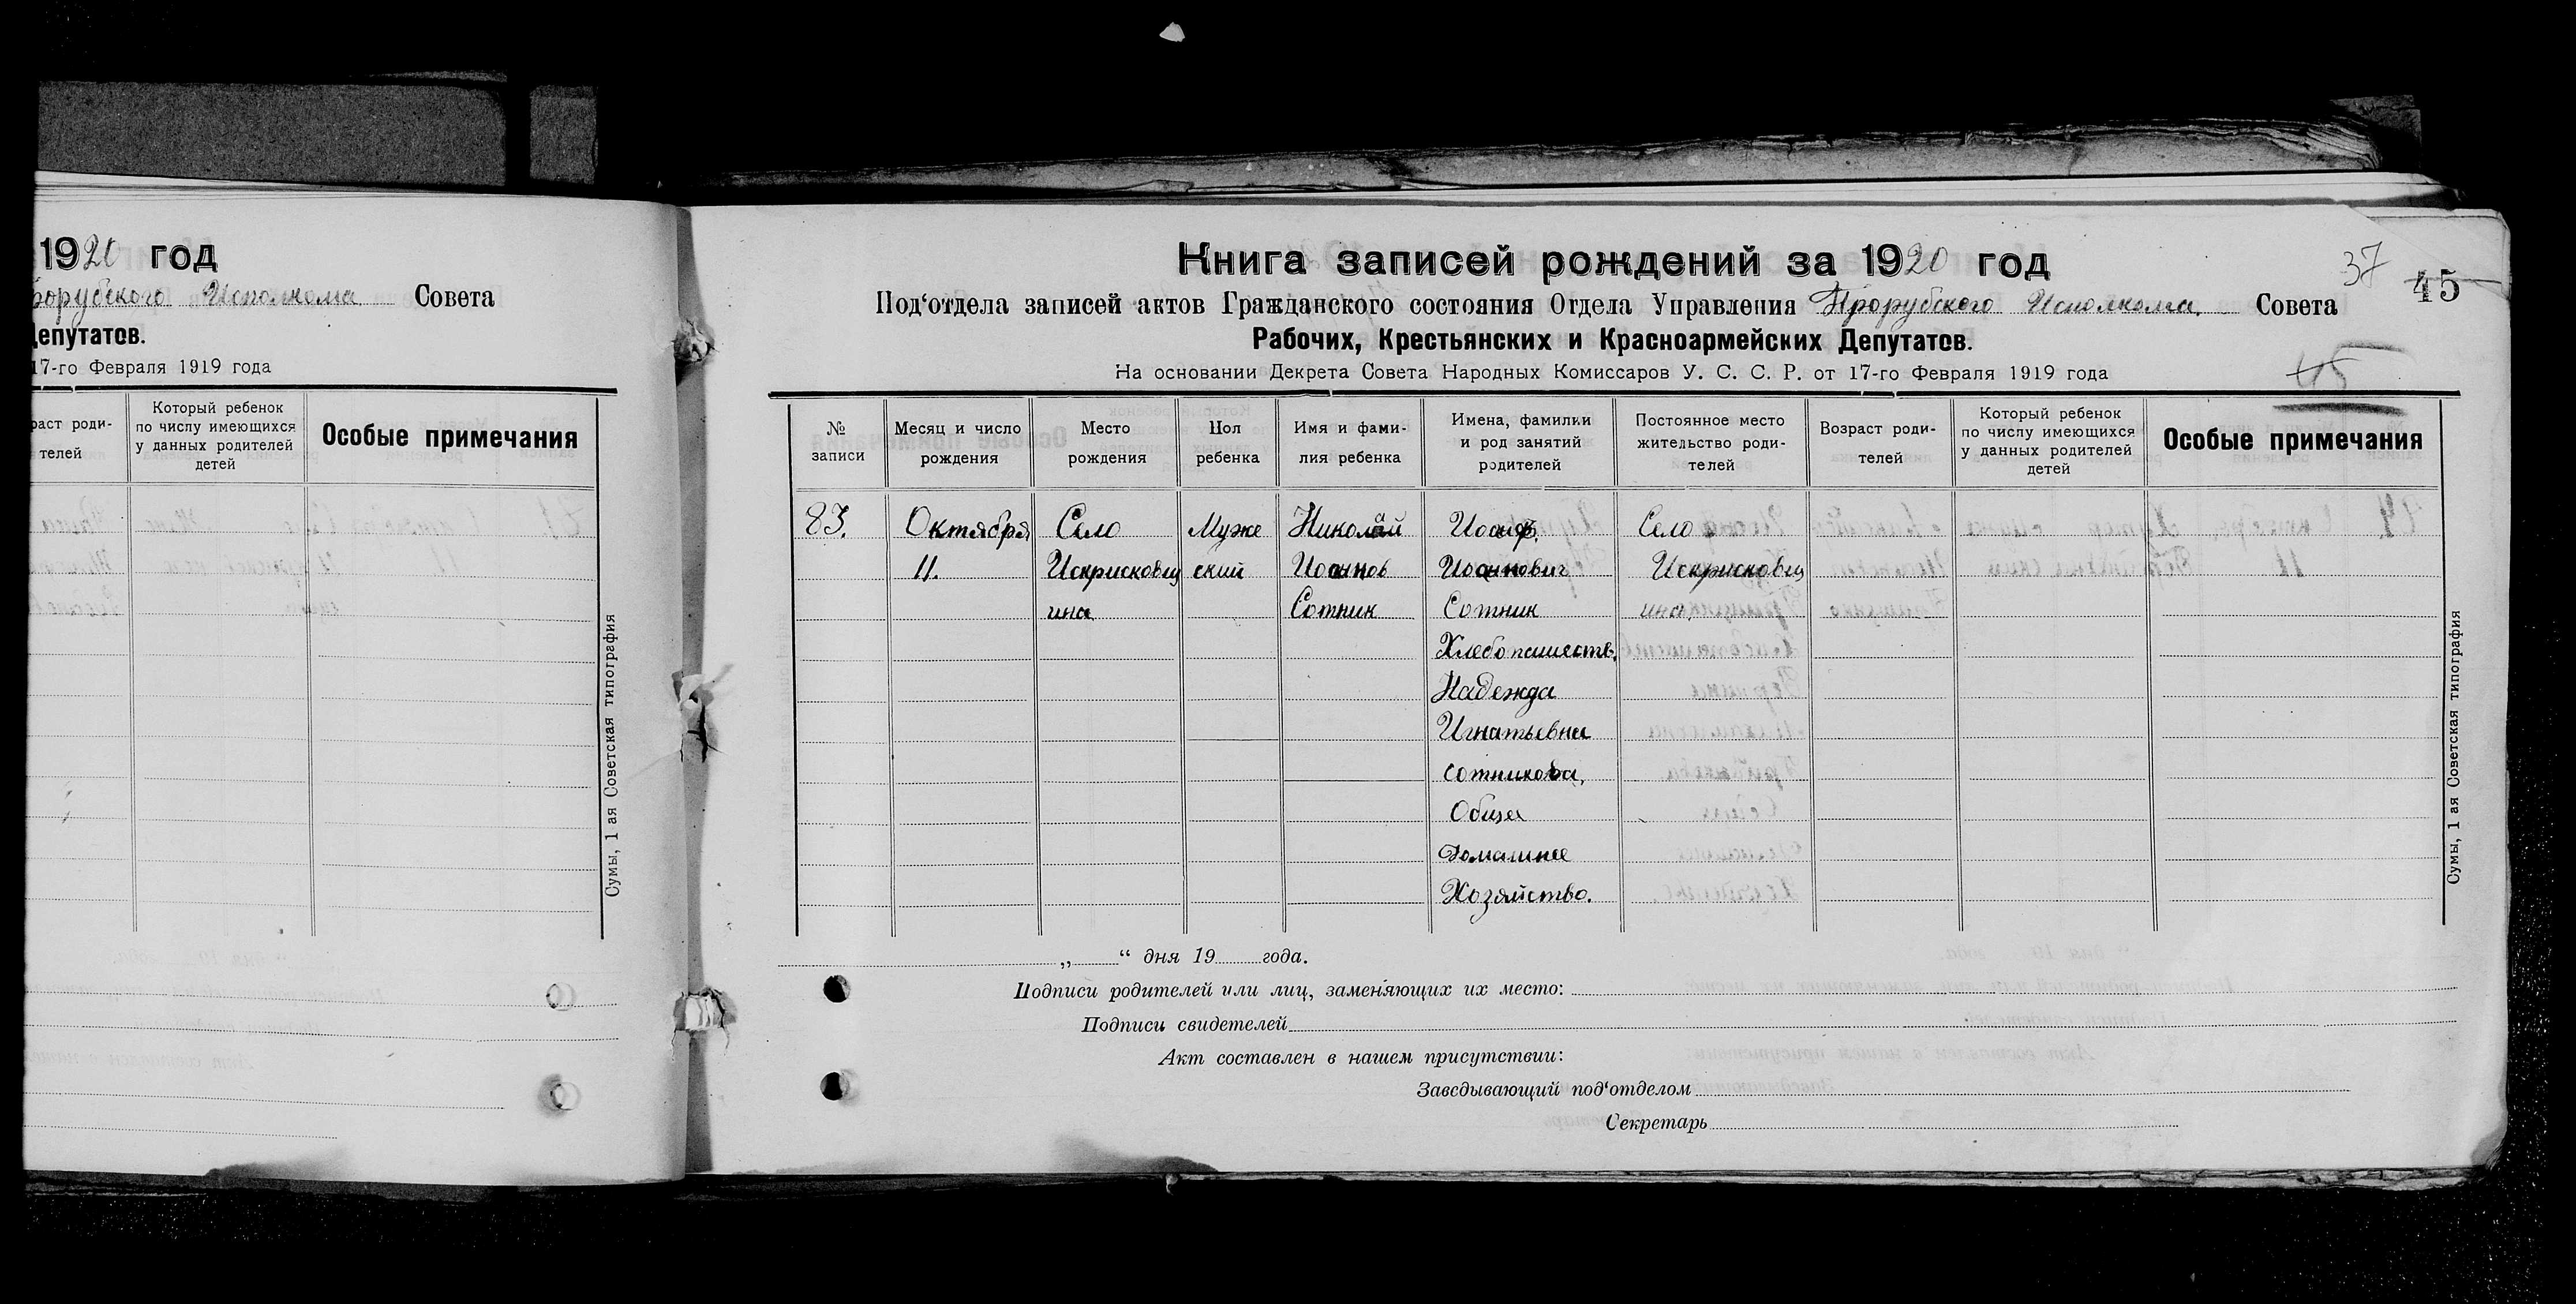 1920 год
Исполкома Совета
Депутатов.
17-го Февраля 1919 года
раст роди-
телей
Который ребенок
по числу имеющихся
у данных родителей
детей
Особые примечания
Сумы, 1 ая Советская типография
Книга записей рождений за 1920 год
37
45
Под‘отдела записей актов Гражданского состояния Отдела Управления Прорубского Исполкома. Совета
Рабочих, Крестьянских и Красноармейских Депутатов.
На основании Декрета Совета Народных Комиссаров У. С. С. Р. от 17-го Февраля 1919 года
45
№
записи
Месяц и число
рождения
Место
рождения
Пол
ребенка
Имя и фами-
лия ребенка
Имена, фамилии
и род занятий
родителей
Постоянное место
жительство роди-
телей
Возраст роди-
телей
Который ребенок
по числу имеющихся
у данных родителей
детей
Особые примечания
83. Октября Село Муже Николай Иосиф. Село
11. Искрисковщ ский Иоаннов Иоаннович Искрисковщ
ина Сотник Сотник ина.
Хлебопашеств.
Надежда
Игнатьевна
Сотникова,
Общее
Домашнее
Хозяйство.
„ “ дня 19 года.
Подписи родителей или лиц, заменяющих их место:
Подписи свидетелей
Акт составлен в нашем присутствии:
Заведывающий под‘отделом
Секретарь
Сумы, 1 ая Советская типография